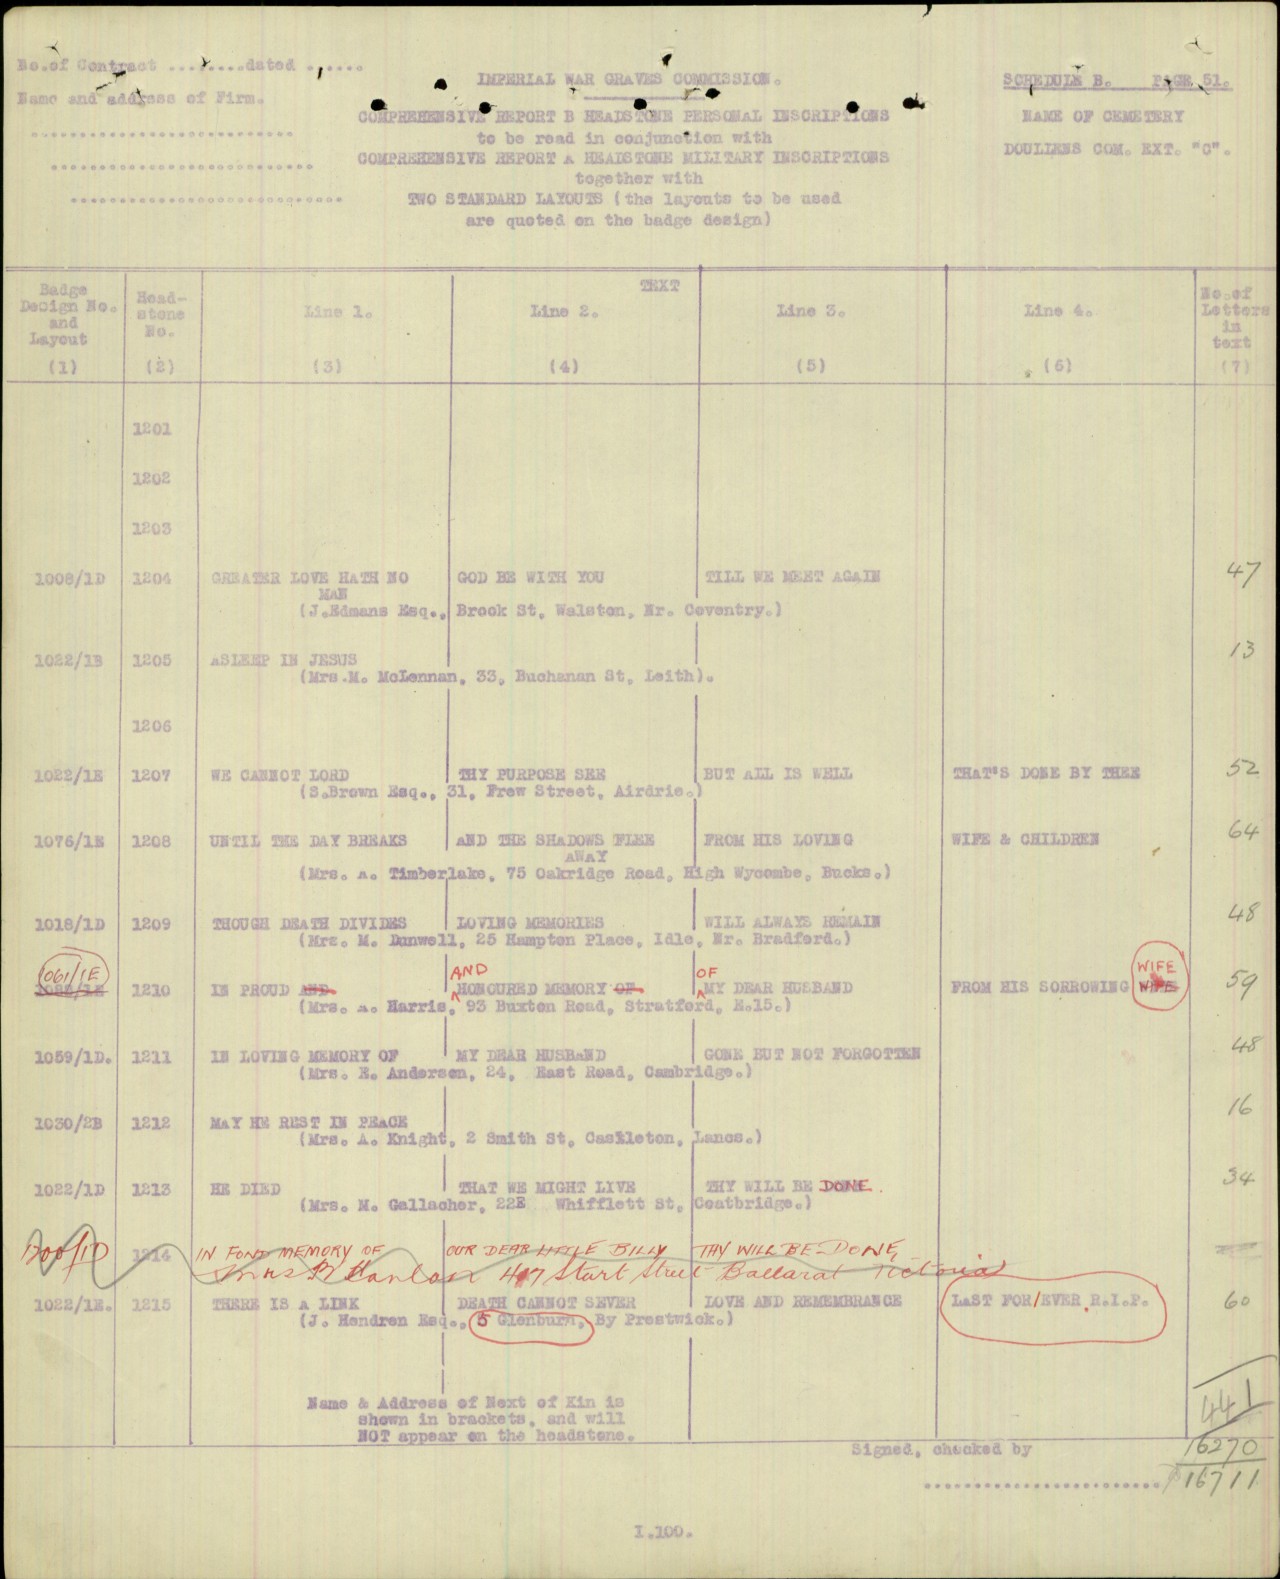 No.of Contract ........dated ......
Name and address of Firm.
IMPERIAL WAR GRAVES COMMISSION.
COMPREHENSIVE REPORT B HEADSTONE PERSONAL INSCRIPTIONS
to be read in conjunction with
COMPREHENSIVE REPORT A HEADSTONE MILITARY INSCRIPTIONS
together with
TWO STANDARD LAYOUTS (the layouts to be used
are quoted on the badge design)
SCHEDULE B. PAGE 51.
NAME OF CEMETERY
DOULLENS COM. EXT. "C".
Badge Design No. and Layout (1)
Head-stone No. (2)
TEXT
Line 1. (3)
Line 2. (4)
Line 3. (5)
Line 4. (6)
No.of Letters in text (7)
1201
1202
1203
1008/1D 1204 GREATER LOVE HATH NO MAN GOD BE WITH YOU TILL WE MEET AGAIN 47
(J.Edmans Esq., Brook St, Walston, Nr. Coventry.)
1022/1B 1205 ASLEEP IN JESUS 13
(Mrs.M. McLennan, 33, Buchanan St, Leith).
1206
1022/1E 1207 WE CANNOT LORD THY PURPOSE SEE BUT ALL IS WELL THAT'S DONE BY THEE 52
(S.Brown Esq., 31, Frew Street, Airdrie.)
1076/1E 1208 UNTIL THE DAY BREAKS AND THE SHADOWS FLEE AWAY FROM HIS LOVING WIFE & CHILDREN 64
(Mrs. A. Timberlake, 75 Oakridge Road, High Wycombe, Bucks.)
1018/1D 1209 THOUGH DEATH DIVIDES LOVING MEMORIES WILL ALWAYS REMAIN 48
(Mrs. M. Dunwell, 25 Hampton Place, Idle, Nr. Bradford.)
1061/1E AND OF WIFE
1210 IN PROUD AND HONOURED MEMORY OF MY DEAR HUSBAND FROM HIS SORROWING WIFE 59
(Mrs. A. Harris, 93 Buxton Road, Stratford, E.15.)
1059/1D. 1211 IN LOVING MEMORY OF MY DEAR HUSBAND GONE BUT NOT FORGOTTEN 48
(Mrs. E. Anderson, 24, East Road, Cambridge.)
1030/2B 1212 MAY HE REST IN PEACE 16
(Mrs. A. Knight, 2 Smith St, Castleton, Lancs.)
1022/1D 1213 HE DIED THAT WE MIGHT LIVE THY WILL BE DONE. 34
(Mrs. M. Gallacher, 22E Whifflett St, Coatbridge.)
1214 IN FOND MEMORY OF OUR DEAR LITTLE BILLY THY WILL BE DONE
Hanlon Sturt Street Ballarat Victoria
1022/1E. 1215 THERE IS A LINK DEATH CANNOT SEVER LOVE AND REMEMBRANCE LAST FOR/EVER.R.I.P. 60
(J. Hendren Esq., 5 Glenburn, By Prestwick.)
Name & Address of Next of Kin is
shown in brackets, and will
NOT appear on the headstone.
441
Signed, checked by 16270
16711
I.100.